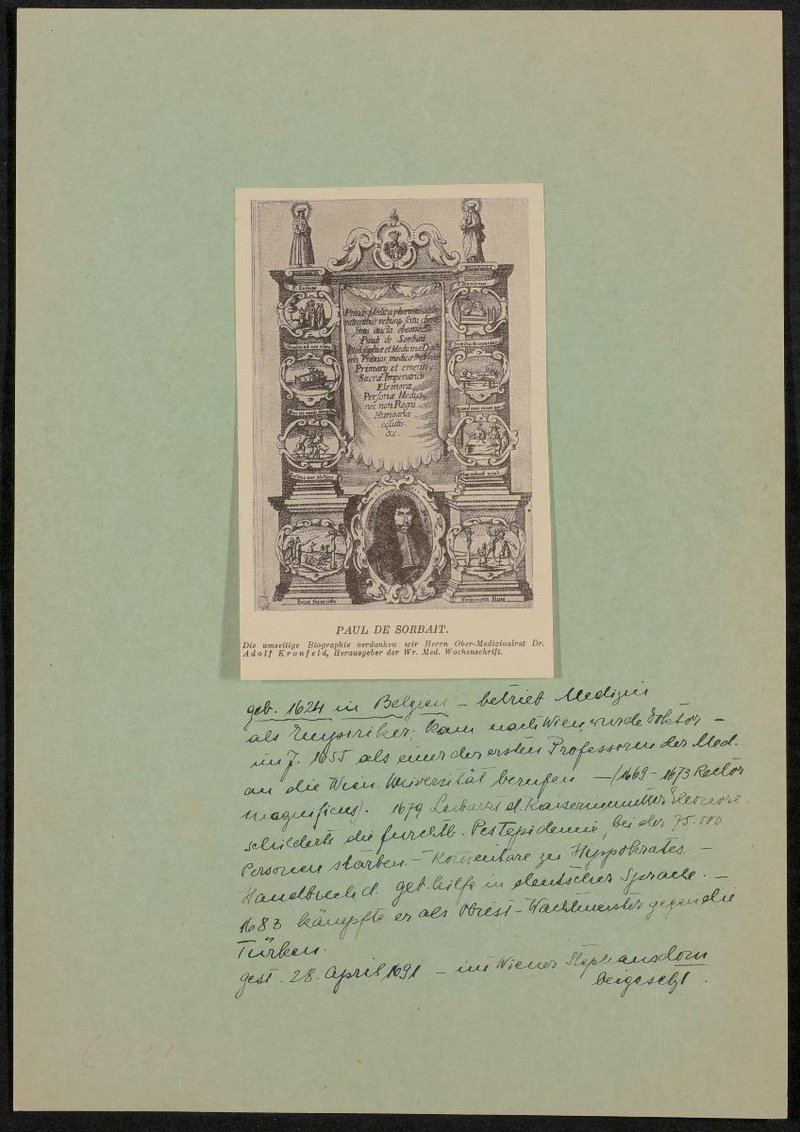 Praxis Medica
Pauli de Sorbait
Primarij et emeriti,
Sacræ Imperatricis
Eleonoræ
Personæ Medici,
nec non Regni
Hungariæ
equitis
&c.
PAUL DE SORBAIT.
Die umseitige Biographie verdanken wir Herrn Ober-Medizinalrat Dr.
Adolf Kronfeld, Herausgeber der Wr. Med. Wochenschrift.
geb. 1624 in Belgien – betrieb Medizin
als Empiriker; kam nach Wien, wurde Doktor –
im J. 1655 als einer der ersten Professoren der Med.
an die Wien. Universität berufen – (1669 – 1673 Rector
magnificus). 1679 Leibarzt d. Kaiserinmutter Eleonore.
schilderte die furchtb. Pestepidemie, bei der 75.000
Personen starben. – Komentare zu Hyppokrates. –
Handbuch d. geb. hilfe in deutscher Sprache. –
1683 kämpfte er als Obrist-Wachtmeister gegen die
Türken.
gest. 28. April 1691 – im Wiener Stephansdom
beigesetzt.